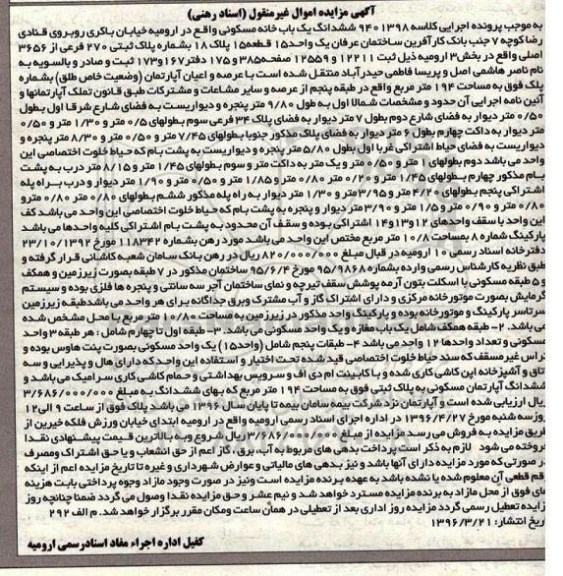 آگهی مزایده اموال غیرمنقول (اسناد رهنی)
به موجب پرونده اجرایی کلاسه ۹۴۰۱۳۹۸ ششدانگ یک باب خانه مسکونی واقع در ارومیه خیابان باکری روبروی قنادی
رضا کوچه ۷ جنب بانک کارآفرین ساختمان عرفان یک واحد۱۵ قطعه۱۵ پلاک ۱۸ بشماره پلاک ثبتی ۲۷۰ فرعی از ۳۶۵۶
اصلی واقع در بخش۳ ارومیه ذیل ثبت ۱۲۲۱۱ و ۱۲۵۵۹ صفحه۳۸۵ و ۱۷۵ دفتر۱۶۷و۱۷۳ ثبت و صادر و بالسویه به
نام ناصر هاشمی اصل و پریسا فاطمی حیدرآباد منتقل شده است با عرصه و اعیان آپارتمان (وضعیت خاص طلق) بشماره
پلاک فوق به مساحت ۱۹۴ متر مربع واقع در طبقه پنجم از عرصه و سایر مشاعات و مشترکات طبق قانون تملک آپارتمانها و
آئین نامه اجرایی آن حدود و مشخصات شمالا اول به طول ۹/۸۰ متر پنجره و دیواریست به فضای شارع شرقا اول بطول
۰/۵۰ متر دیوار به فضای شارع دوم بطول ۷ متر دیوار به فضای پلاک ۳۴ فرعی سوم بطولهای ۰/۵ متر و ۱/۳۰ متر و ۰/۵۰
متر دیوار به داکت چهارم بطول ۶ متر دیوار به فضای پلاک مذکور جنوبا بطولهای ۷/۴۵ متر و ۰/۵۰ متر و ۸/۳۰ متر پنجره و
دیواریست به فضای حیاط اشتراکی غربا اول بطول ۵/۸۰ متر پنجره و دیواریست به پشت بام که حیاط خلوت اختصاصی این
واحد می باشد دوم بطولهای ۱ متر و ۰/۵۰ متر و یک متر به داکت متر و سوم بطولهای ۱/۴۵ متر و ۸/۱۵ متر درب به پشت
بام مذکور چهارم بطولهای ۱/۴۵ متر و ۰/۲۰ متر و ۰/۸۰ متر و ۱/۸۵ متر و ۰/۵۰ متر و ۱/۹۰ متر دیوار و درب به راه پله
اشتراکی پنجم بطولهای ۴/۲۰ متر و ۳/۹۵متر و ۱/۳۰ متر دیوار به راه پله مذکور ششم بطولهای ۰/۸۰ متر و ۰/۸۰ متر و
۰/۸۰ متر و ۰/۹۰ متر و ۱/۵ متر و ۳/۹۰ متر دیوار و پنجره به پشت بام که حیاط خلوت اختصاصی این واحد می باشد کف
این واحد با سقف واحدهای ۱۲و۱۳و۱۴ اشتراکی بوده و سقف آن محدود به پشت بام اشتراکی کلیه واحدها می باشد
پارکینگ شماره ۸ بمساحت ۱۰/۸ متر مربع مختص این واحد می باشد مورد رهن بشماره ۱۱۸۳۴۲ مورخ ۲۳/۱۰/۱۳۹۲
دفترخانه اسناد رسمی ۱۰ ارومیه در قبال مبلغ ۸۲۰/۰۰۰/۰۰۰ ریال در رهن بانک سامان شعبه کاشانی قرار گرفته و
طبق نظریه کارشناس رسمی وارده بشماره ۹۵/۹۸۶۸ مورخ ۹۵/۶/۴ ساختمان مذکور در ۷ طبقه بصورت زیرزمین و همکف
و ۵ طبقه مسکونی با اسکلت بتون آرمه پوشش سقف تیرچه و نمای ساختمان آجر سه سانتی و پنجره ها فلزی بوده و سیستم
گرمایش بصورت موتورخانه مرکزی و دارای اشتراک گاز و آب مشترک وبرق جداگانه برای هر واحد می باشد طبقه زیرزمین
سرتاسر پارکینگ و موتورخانه بوده و پارکینگ واحد مذکور در زیرزمین به مساحت ۱۰/۸۰ متر مربع با محل مشخص شده
می باشد. ۲- طبقه همکف شامل یک باب مغازه و یک واحد مسکونی می باشد. ۳- طبقه اول تا چهارم شامل: هر طبقه ۳ واحد
مسکونی و تعداد واحدها ۱۲ واحد می باشد ۴- طبقات پنجم شامل (واحد۱۵) یک واحد مسکونی بصورت پنت هاوس بوده و
تراس غیرمسقف که سند حیاط خلوت اختصاصی قید شده تحت اختیار و استفاده این واحد که دارای هال و پذیرایی و سه
تاق و آشپزخانه اپن کاشی کاری شده و با کابینت ام دی اف و سرویس بهداشتی و حمام کاشی کاری سرامیک می باشد و
ششدانگ آپارتمان مسکونی به پلاک ثبتی فوق به مساحت ۱۹۴ متر مربع که بهای ششدانگ به مبلغ ۳/۶۸۶/۰۰۰/۰۰۰
ریال ارزیابی شده است و آپارتمان نزد شرکت بیمه سامان بیمه تا پایان سال ۱۳۹۶ می باشد پلاک فوق از ساعت ۹ الی۱۲
روز سه شنبه مورخ ۱۳۹۶/۴/۲۷ در اداره اجرای اسناد رسمی ارومیه واقع در ارومیه ابتدای خیابان ورزش فلکه خیرین از
طریق مزایده به فروش می رسد مزایده از مبلغ ۳/۶۸۶/۰۰۰/۰۰۰ریال شروع و به بالاترین قیمت پیشنهادی نقدا
فروخته می شود لازم به ذکر است پرداخت بدهی های مربوط به آب، برق، گاز اعم از حق انشعاب و یا حق اشتراک ومصرف
در صورتی که مورد مزایده دارای آنها باشد و نیز بدهی های مالیاتی و عوارض شهرداری و غیره تا تاریخ مزایده اعم از اینکه
رقم قطعی آن معلوم شده یا نشده باشد به عهده برنده مزایده است ونیز در صورت وجود مازاد وجوه پرداختی بابت هزینه
های فوق از محل مازاد به برنده مزایده مسترد خواهد شد و نیم عشر و حق مزایده نقدا وصول می گردد ضمنا چنانچه روز
مزایده تعطیل رسمی گردد مزایده روز اداری بعد از تعطیلی در همان ساعت ومکان مقرر برگزار خواهد شد. م الف ۲۹۲
تاریخ انتشار: ۱۳۹۶/۳/۲۱
کفیل اداره اجراء مفاد اسنادرسمی ارومیه